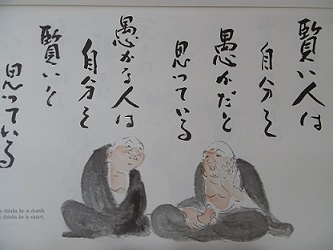 賢い人は
自分を
愚かだと
思っている
愚かな人は
自分を
賢いと
思っている
thinks he is dumb
thinks he is smart